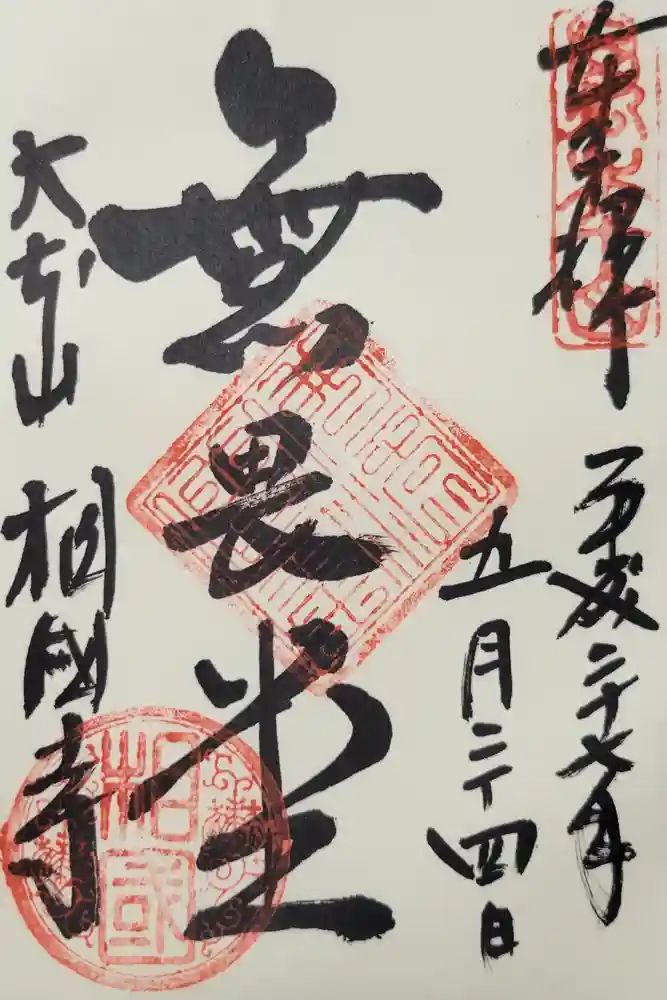 奉拝
平成二十七年
五月二十四日
無畏堂
大本山 相國寺
相國